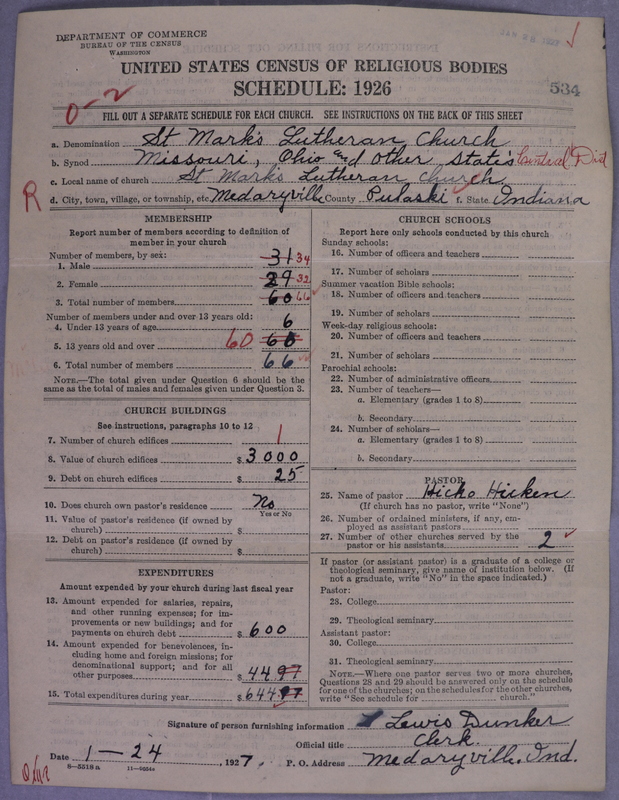 DEPARTMENT OF COMMERCE
BUREAU OF THE CENSUS
WASHINGTON
UNITED STATES CENSUS OF RELIGIOUS BODIES
SCHEDULE: 1926
534
0-2
FILL OUT A SEPARATE SCHEDULE FOR EACH CHURCH. SEE INSTRUCTIONS ON THE BACK OF THIS SHEET
a. Denomination St Mark's Lutheran Church
b. Synod Missouri, Ohio and other State's Central Dist
c. Local name of church St Mark's Lutheran Church
R
d. City, town, village, or township, etc. Medaryville County Pulaski f. State Indiana
MEMBERSHIP
Report number of members according to definition of
member in your church
Number of members, by sex:
1. Male 31 34
2. Female 29 32
3. Total number of members 60 66
Number of members under and over 13 years old:
4. Under 13 years of age 6
5. 13 years old and over 60 60
6. Total number of members 66
NOTE.—The total given under Question 6 should be the
same as the total of males and females given under Question 3.
CHURCH BUILDINGS
See instructions, paragraphs 10 to 12
7. Number of church edifices 1
8. Value of church edifices $ 3000
9. Debt on church edifices $ 25
10. Does church own pastor's residence No
Yes or No
11. Value of pastor's residence (if owned by
church) $
12. Debt on pastor's residence (if owned by
church) $
EXPENDITURES
Amount expended by your church during last fiscal year
13. Amount expended for salaries, repairs,
and other running expenses; for im-
provements or new buildings; and for
payments on church debt $ 600
14. Amount expended for benevolences, in-
cluding home and foreign missions; for
denominational support; and for all
other purposes $ 44 97
15. Total expenditures during year $ 644 97
CHURCH SCHOOLS
Report here only schools conducted by this church
Sunday schools:
16. Number of officers and teachers
17. Number of scholars
Summer vacation Bible schools:
18. Number of officers and teachers
19. Number of scholars
Week-day religious schools:
20. Number of officers and teachers
21. Number of scholars
Parochial schools:
22. Number of administrative officers
23. Number of teachers—
a. Elementary (grades 1 to 8)
b. Secondary
24. Number of scholars—
a. Elementary (grades 1 to 8)
b. Secondary
PASTOR
25. Name of pastor Hicko Hicken
(If church has no pastor, write "None")
26. Number of ordained ministers, if any, em-
ployed as assistant pastors
27. Number of other churches served by the
pastor or his assistants 2
If pastor (or assistant pastor) is a graduate of a college or
theological seminary, give name of institution below. (If
not a graduate, write "No" in the space indicated.)
Pastor:
28. College
29. Theological seminary
Assistant pastor:
30. College
31. Theological seminary
NOTE.—Where one pastor serves two or more churches,
Questions 28 and 29 should be answered only on the schedule
for one of the churches; on the schedules for the other churches,
write "See schedule for church."
Signature of person furnishing information Lewis Dunker
Official title Clerk.
Date 1—24, 1927. P. O. Address Medaryville. Ind.
8—5518 a